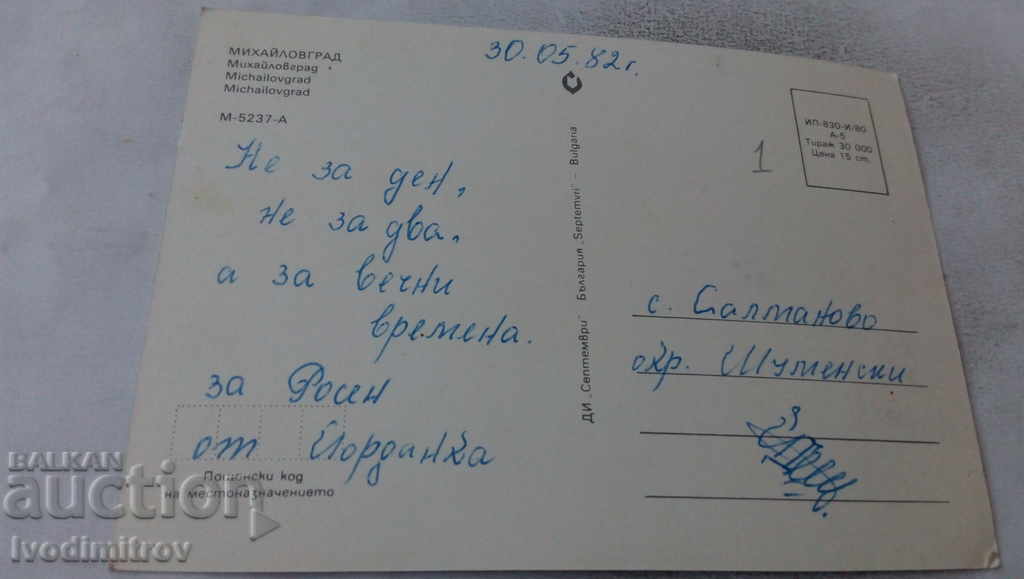 МИХАЙЛОВГРАД
Михайловград
Michailovgrad
Michailovgrad
М-5237-А
30.05.82г.
Не за ден,
не за два,
а за вечни
времена.
за Росен
от Йорданка
Пощенски код
на местоназначението
ДИ „Септември" България „Septemvri" – Bulgaria
1
ИП-830-И/80
А-5
Тираж 30 000
Цена 15 ст.
с. Салманово
окр. Шуменски
BALKAN
auction
Ivodimitrov